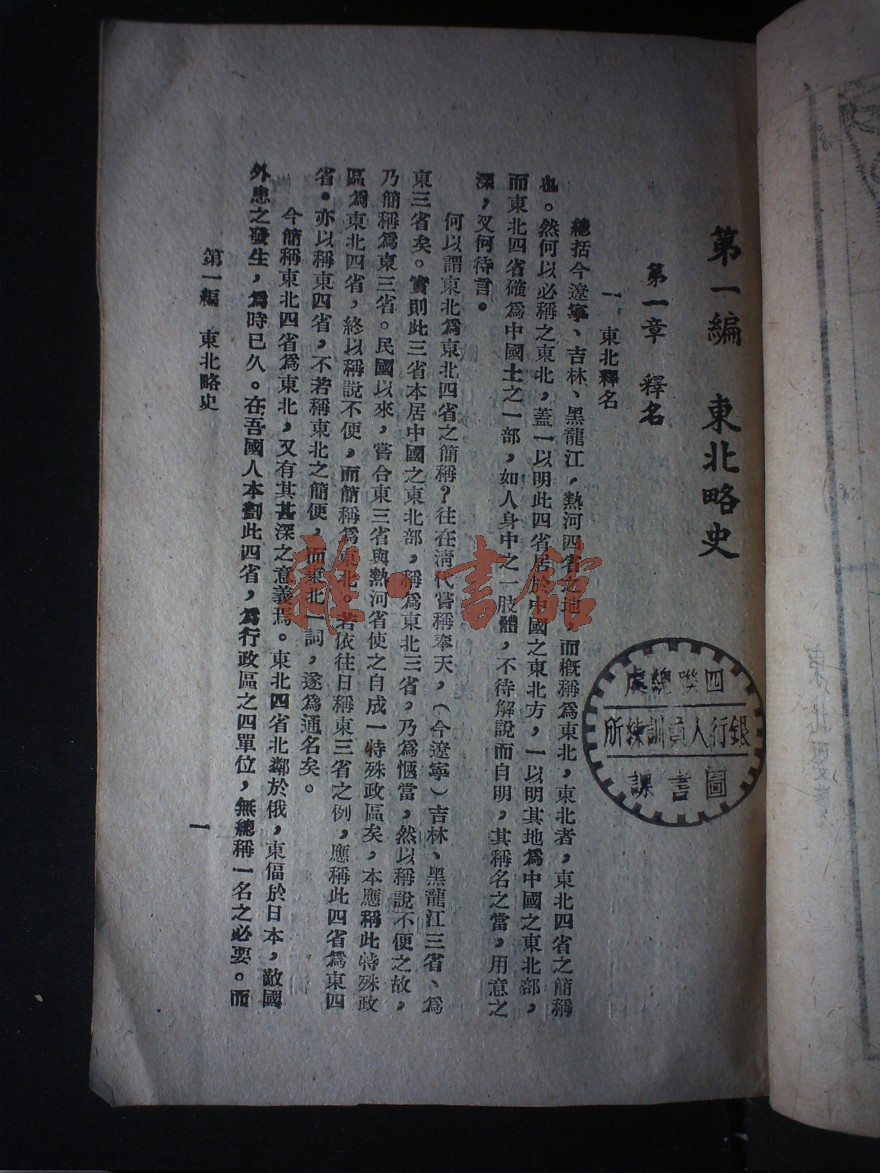 第一編　東北略史
第一章　釋名
一　東北釋名
總括今遼寧、吉林、黑龍江，熱河四省之地，而概稱為東北，東北者，東北四省之簡稱
也。然何以必稱之東北，蓋一以明此四省居於中國之東北方，一以明其地為中國之東北部，
而東北四省確為中國土之一部，如人身中之一肢體，不待解說而自明，其稱名之當，用意之
深，又何待言。
何以謂東北為東北四省之簡稱？往在清代嘗稱奉天，（今遼寧）吉林、黑龍江三省、為
東三省矣。實則此三省本居中國之東北部，稱為東北三省，乃為愜當，然以稱說不便之故，
乃簡稱為東三省。民國以來，嘗合東三省與熱河省使之自成一特殊政區矣，本應稱此特殊政
區為東北四省，終以稱說不便，而簡稱為東北。若依往日稱東三省之例，應稱此四省為東四
省。亦以稱東四省，不若稱東北之簡便，而東北一詞，遂為通名矣。
今簡稱東北四省為東北，又有其甚深之意義焉。東北四省北鄰於俄，東偪於日本，敵國
外患之發生，為時已久。在吾國人本劃此四省，為行政區之四單位，無總稱一名之必要。而
第一編　東北略史
一
四聯總處
銀行人員訓練所
圖書課
雜·書館